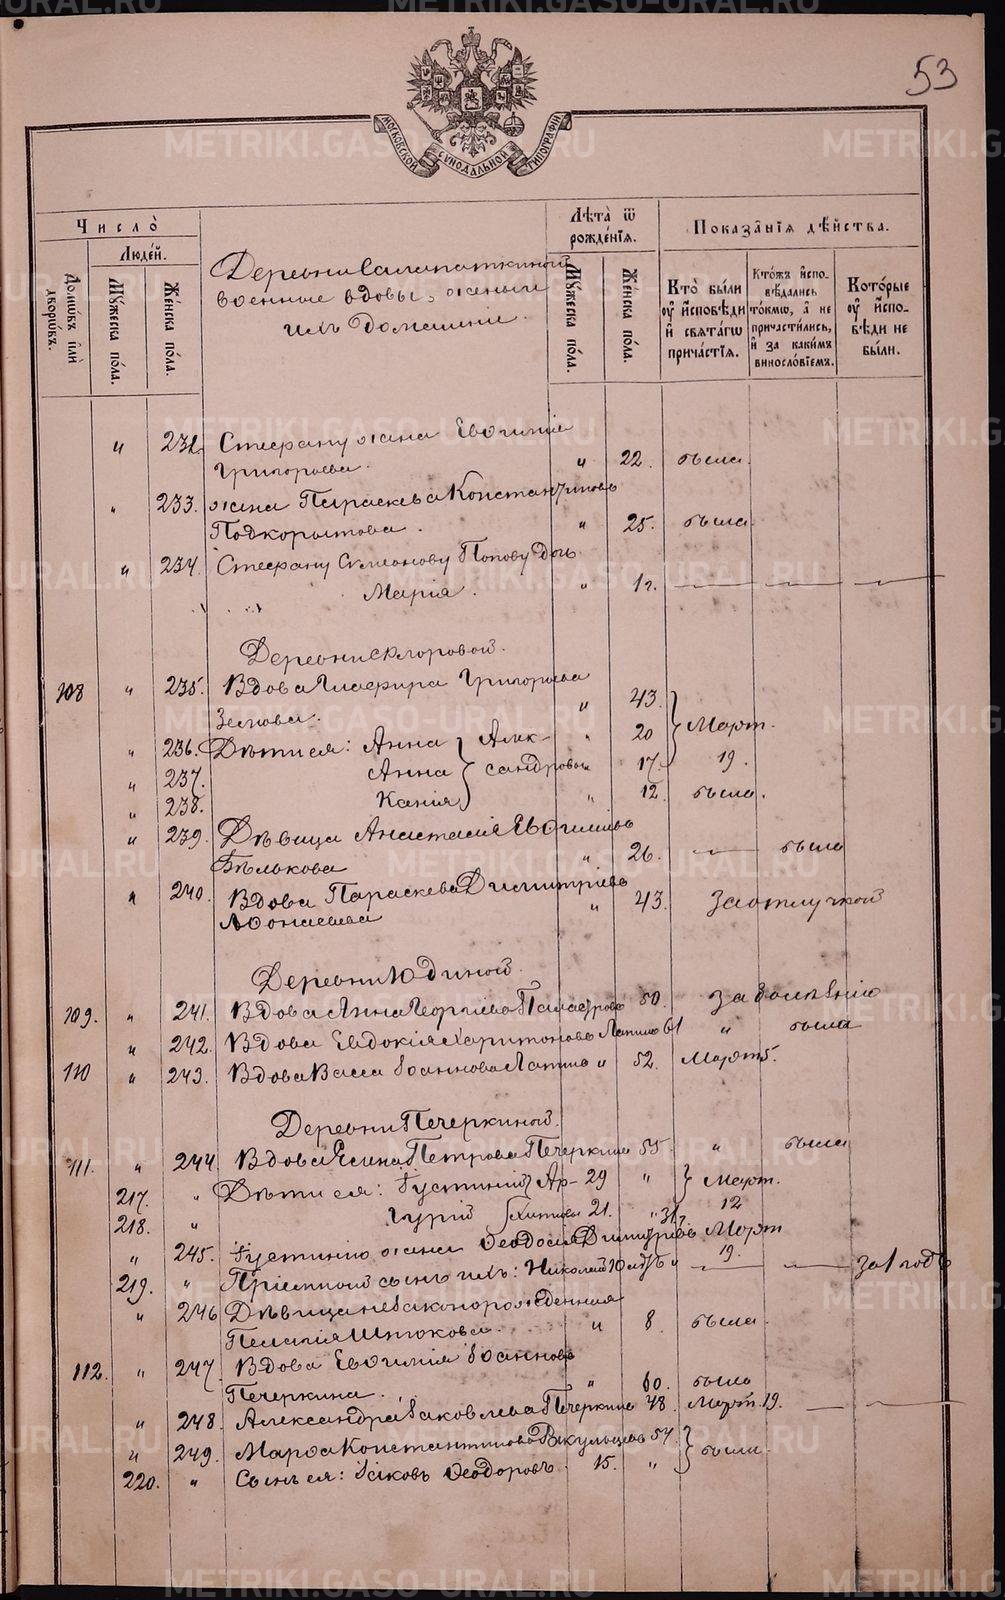 53
МОСКОВСКОЙ СѴНОДАЛЬНОЙ ТИПОГРАФІИ
Число̀
Людéй.
Домѡвъ и҆лѝ дворѡвъ.
Мꙋжеска по́ла.
Же́нска по́ла.
Деревни Салопаткиной
военные вдовы, жены и
ихъ домашніи.
Лѣта ѿ рожде́нїѧ.
Мꙋжеска по́ла.
Же́нска по́ла.
Показа̑нїѧ дѣ́йства.
Кто̀ бы́ли оу҆ и҆сповѣди и҆ свѧта́гѡ прича́стїѧ.
Кто́жъ и҆спо-вѣдались то́кмѡ, а҆ не причасти́лись, и҆ за каки́мъ винослóвїемъ.
Кото́рые оу҆ и҆спо-вѣди не бы́ли.
" 232. Стефану жена Евѳимія
Григорьева. " 22. была.
" 233. жена Параскева Константинова
Подкорытова. " 25. была.
" 234. Стефану Симеонову Попову дочь
Марія. " 1 г. — — —
Деревни Флоровой.
108 " 235. Вдова Глафира Григорьева
Зенкова. " 43. Март.
" 236. Дѣти ея: Анна Алек- " 20 19.
" 237. Анна сандровы " 17.
" 238. Ксанія " 12. была.
" 239. Дѣвица Анастасія Евѳиміева
Бѣлькова " 26. — была
" 240. Вдова Параскева Димитріева
Аѳонасьева " 43. За отлучкой
Деревни Юдиной.
109. " 241. Вдова Анна Георгіева 50. За болѣзнію
" 242. Вдова Евдокія Харитонова Лапина 61 " была
110 " 243. Вдова Васса Іоаннова Лапина " 52. Март 5.
Деревни Печеркиной.
111. " 244. Вдова Елена Петрова Печеркина 55 " была
217. " Дѣти ея: Іустиній Ар- 29 " Март.
218. " Гурій хипповы 21. " 12
" 245. Іустинію жена Ѳеодосія Димитріева 31 Март 19.
219. " Пріемной сынъ ихъ: Николай " — — за 1 годъ
" 246 Дѣвица незаконорожденная
Пелагія Шпюкова. " 8. была.
112. " 247. Вдова Евѳимія Іоаннова
Печеркина. " 60. была
" 248. Александра Іаковлева Печеркина 48. Март. 19. — —
" 249. Марѳа Константинова Викульцева 54. были.
220. " Сынъ ея: Іаковъ Ѳеодоровъ. 15. "
METRIKI.GASO-URAL.RU